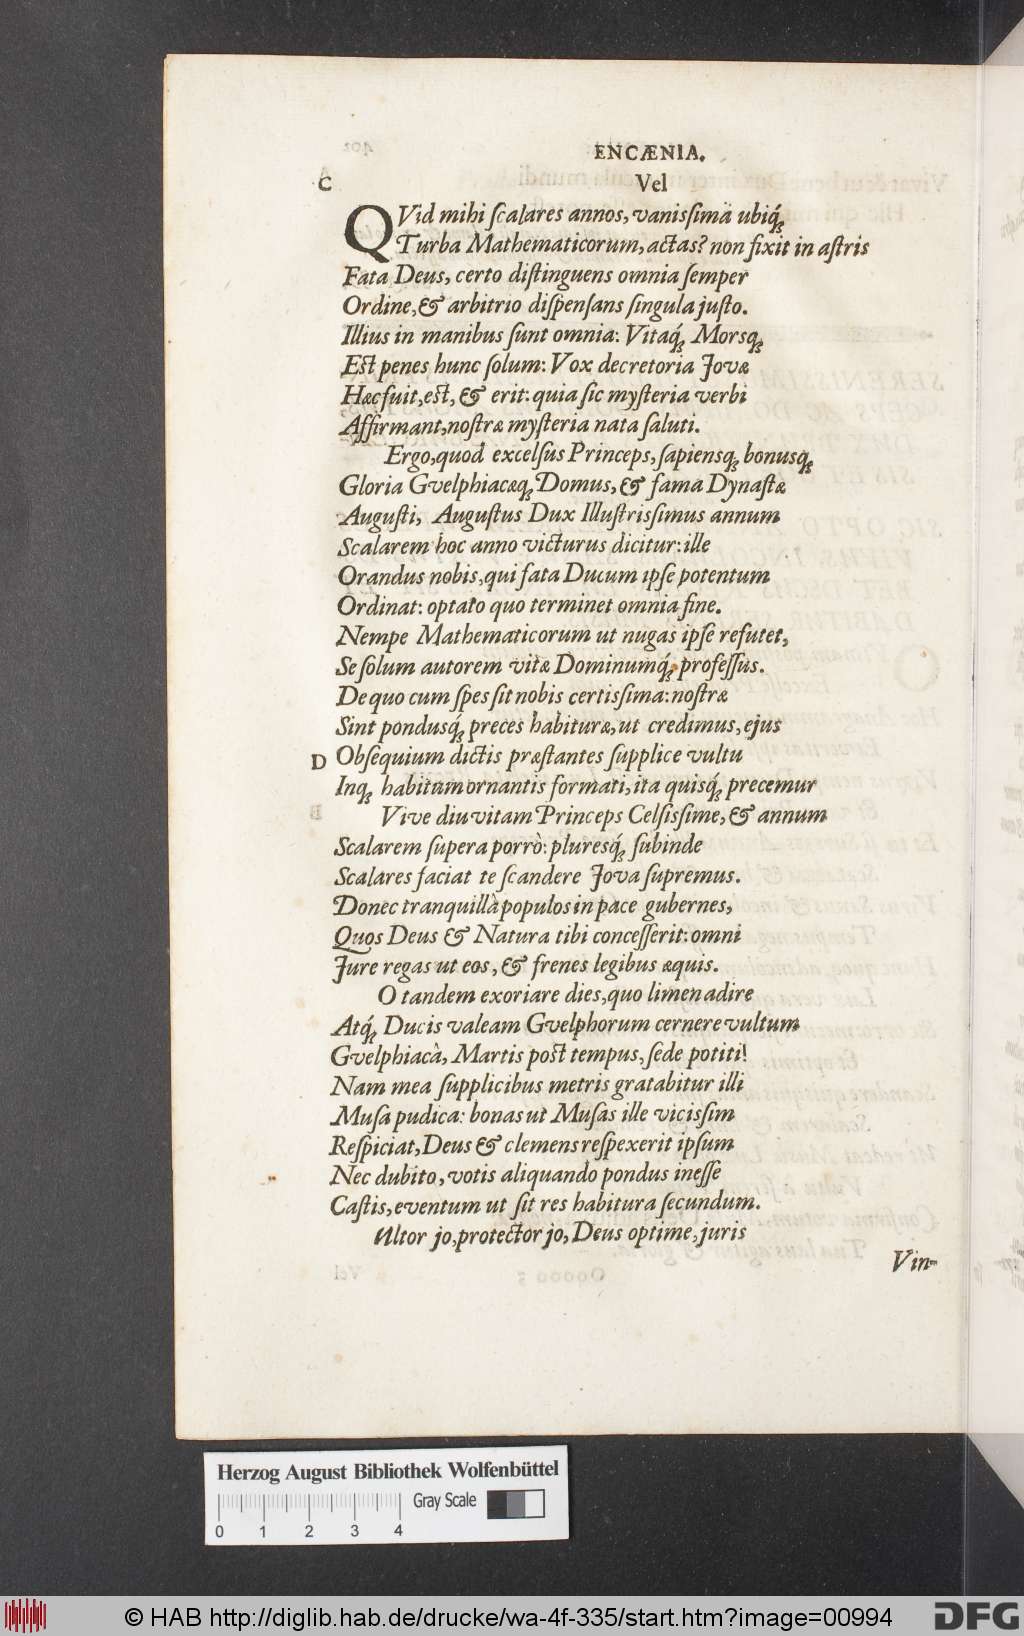 ENCÆNIA.
C
Vel
QVid mihi ſcalares annos, vanisſimä ubiq́ꝫ
Turba Mathematicorum, actas? non fixit in aſtris
Fata Deus, certo diſtinguens omnia ſemper
Ordine, & arbitrio diſpenſans ſingula juſto.
Illius in manibus ſunt omnia: Vitaq́ꝫ Morsqꝫ
Eſt penes hunc ſolum: Vox decretoria Jovæ
Hæc fuit, eſt, & erit: quia ſic myſteria verbi
Affirmant, noſtræ myſteria nata ſaluti.
Ergo, quod excelſus Princeps, ſapiensqꝫ bonusqꝫ
Gloria Gvelphiacæqꝫ Domus, & fama Dynaſtæ
Auguſti, Auguſtus Dux Illuſtrisſimus annum
Scalarem hoc anno victurus dicitur: ille
Orandus nobis, qui fata Ducum ipſe potentum
Ordinat: optato quo terminet omnia fine.
Nempe Mathematicorum ut nugas ipſe refutet,
Se ſolum autorem vitæ Dominumq́ꝫ profeſſus.
De quo cum ſpes ſit nobis certisſima: noſtræ
Sint pondusq́ꝫ preces habituræ, ut credimus, ejus
D
Obſequium dictis præſtantes ſupplice vultu
Inqꝫ habitum ornantis formati, ita quisq́ꝫ precemur
Vive diu vitam Princeps Celſisſime, & annum
Scalarem ſupera porrò: pluresq́ꝫ ſubinde
Scalares faciat te ſcandere Jova ſupremus.
Donec tranquillà populos in pace gubernes,
Quos Deus & Natura tibi conceſſerit: omni
Jure regas ut eos, & frenes legibus æquis.
O tandem exoriare dies, quo limen adire
Atq́ꝫ Ducis valeam Gvelphorum cernere vultum
Gvelphiacà, Martis poſt tempus, ſede potiti!
Nam mea ſupplicibus metris gratabitur illi
Muſa pudica: bonas ut Muſas ille viciſſim
Reſpiciat, Deus & clemens reſpexerit ipſum
Nec dubito, votis aliquando pondus ineſſe
Caſtis, eventum ut ſit res habitura ſecundum.
Ultor jo, protector jo, Deus optime, juris
Vin-
Herzog August Bibliothek Wolfenbüttel
Gray Scale
0 1 2 3 4
© HAB http://diglib.hab.de/drucke/wa-4f-335/start.htm?image=00994
DFG